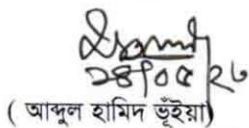 ২৪/০৫/২৩
( আব্দুল হামিদ ভূঁইয়া)